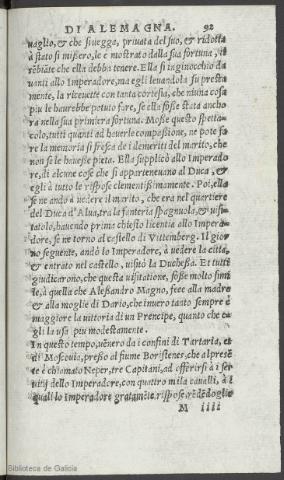 DI ALEMAGNA. 92
uaglio, & che si uegga, priuata del suo, & ridotta
à stato sì misero, le è mostrato dalla sua fortuna, il
rebiate che ella debba tenere. Ella si inginocchiò da
uanti allo Imperadore, ma egli leuandola su presta
mente, la riceuette con tanta cortesia, che niuna cosa
piu le haurebbe potuto fare, se ella fosse stata ancho
ra nella sua primiera fortuna. Mosse questo spetta
colo, tutti quanti ad hauerle compassione, ne potè fa
re la memoria sì fresca de i demeriti del marito, che
non se le hauesse pieta. Ella supplicò allo Imperado
re, di alcune cose che si apparteneuano al Duca, &
egli à tutto le rispose clementissimamente. Poi, ella
se ne andò à uedere il marito, che era nel quartiere
del Duca d'Alua, tra la fanteria spagnuola, & uisi
tatolo, hauendo prima chiesto licentia allo Impera
dore, se ne torno al castello di Vittemberg. Il gior
no seguente, andò lo Imperadore, à uedere la città,
& entrato nel castello, uisitò la Duchessa. Et tutti
giudicarono, che questa uisitatione, fosse molto simi
le, à quella che Alessandro Magno, fece alla madre
& alla moglie di Dario, che inuero tanto sempre è
maggiore la uittoria di un Prencipe, quanto che e
gli la usa piu modestamente.
In questo tempo, uẽnero da i confini di Tartaria, et
di Moscouia, presso al fiume Boristenes, che al presẽ
te è chiamato Neper, tre Capitani, ad offerirsi à i ser
uitij dello Imperadore, con quattro mila caualli, à i
quali lo Imperadore gratamẽte rispose, rẽdẽdoglie
M iiii
Biblioteca de Galicia